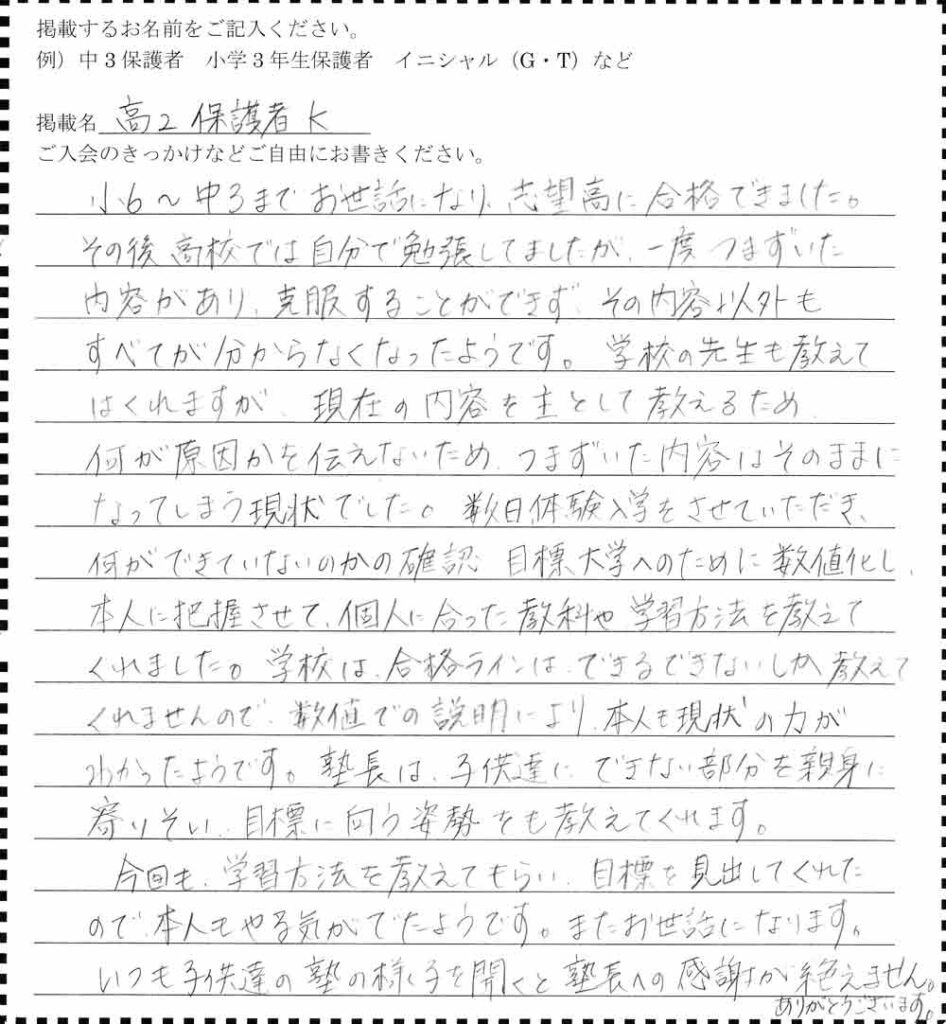 掲載するお名前をご記入ください。
例）中3保護者　小学3年生保護者　イニシャル（G・T）など
掲載名 高2 保護者 K
ご入会のきっかけなどご自由にお書きください。
小6〜中3までお世話になり、志望高に合格できました。
その後高校では自分で勉張してましたが、一度つまずいた
内容があり、克服することができず、その内容以外も
すべてが分からなくなったようです。学校の先生も教えて
はくれますが、現在の内容を主として教えるため、
何が原因かを伝えないため、つまずいた内容はそのままに
なってしまう現状でした。数日体験入学をさせていただき、
何ができていないのかの確認、目標大学へのために数値化し、
本人に把握させて、個人に合った教科や学習方法を教えて
くれました。学校は、合格ラインは、できるできないしか教えて
くれませんので、数値での説明により、本人も現状の力が
わかったようです。塾長は、子供達にできない部分を親身に
寄りそい、目標に向う姿勢をも教えてくれます。
今回も、学習方法を教えてもらい、目標を見出してくれた
ので、本人もやる気がでたようです。またお世話になります。
いつも子供達の塾の様子を聞くと塾長への感謝が絶えません。
ありがとうございます。